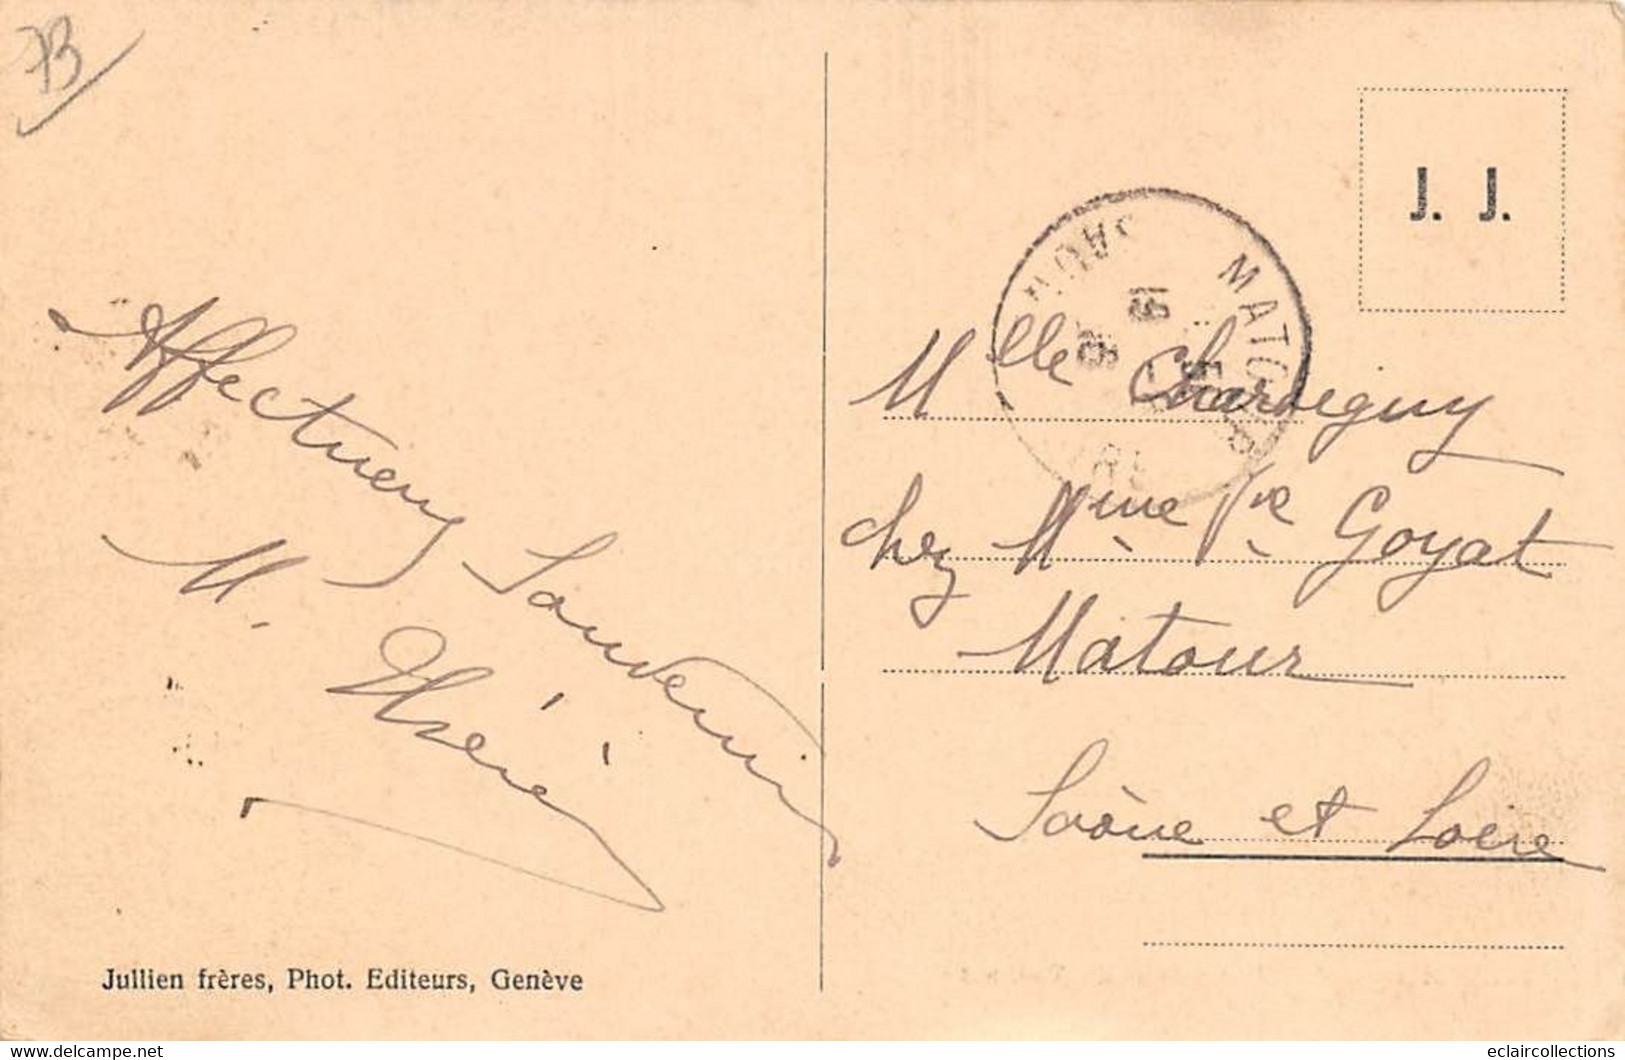 73
Affectueux Souvenir
M.
J. J.
MATOUR
19
Mlle Chardeguy
chez Mme Vve Goyat
Matour
Saône et Loire
Jullien frères, Phot. Editeurs, Genève
www.delcampe.net
eclaircollections